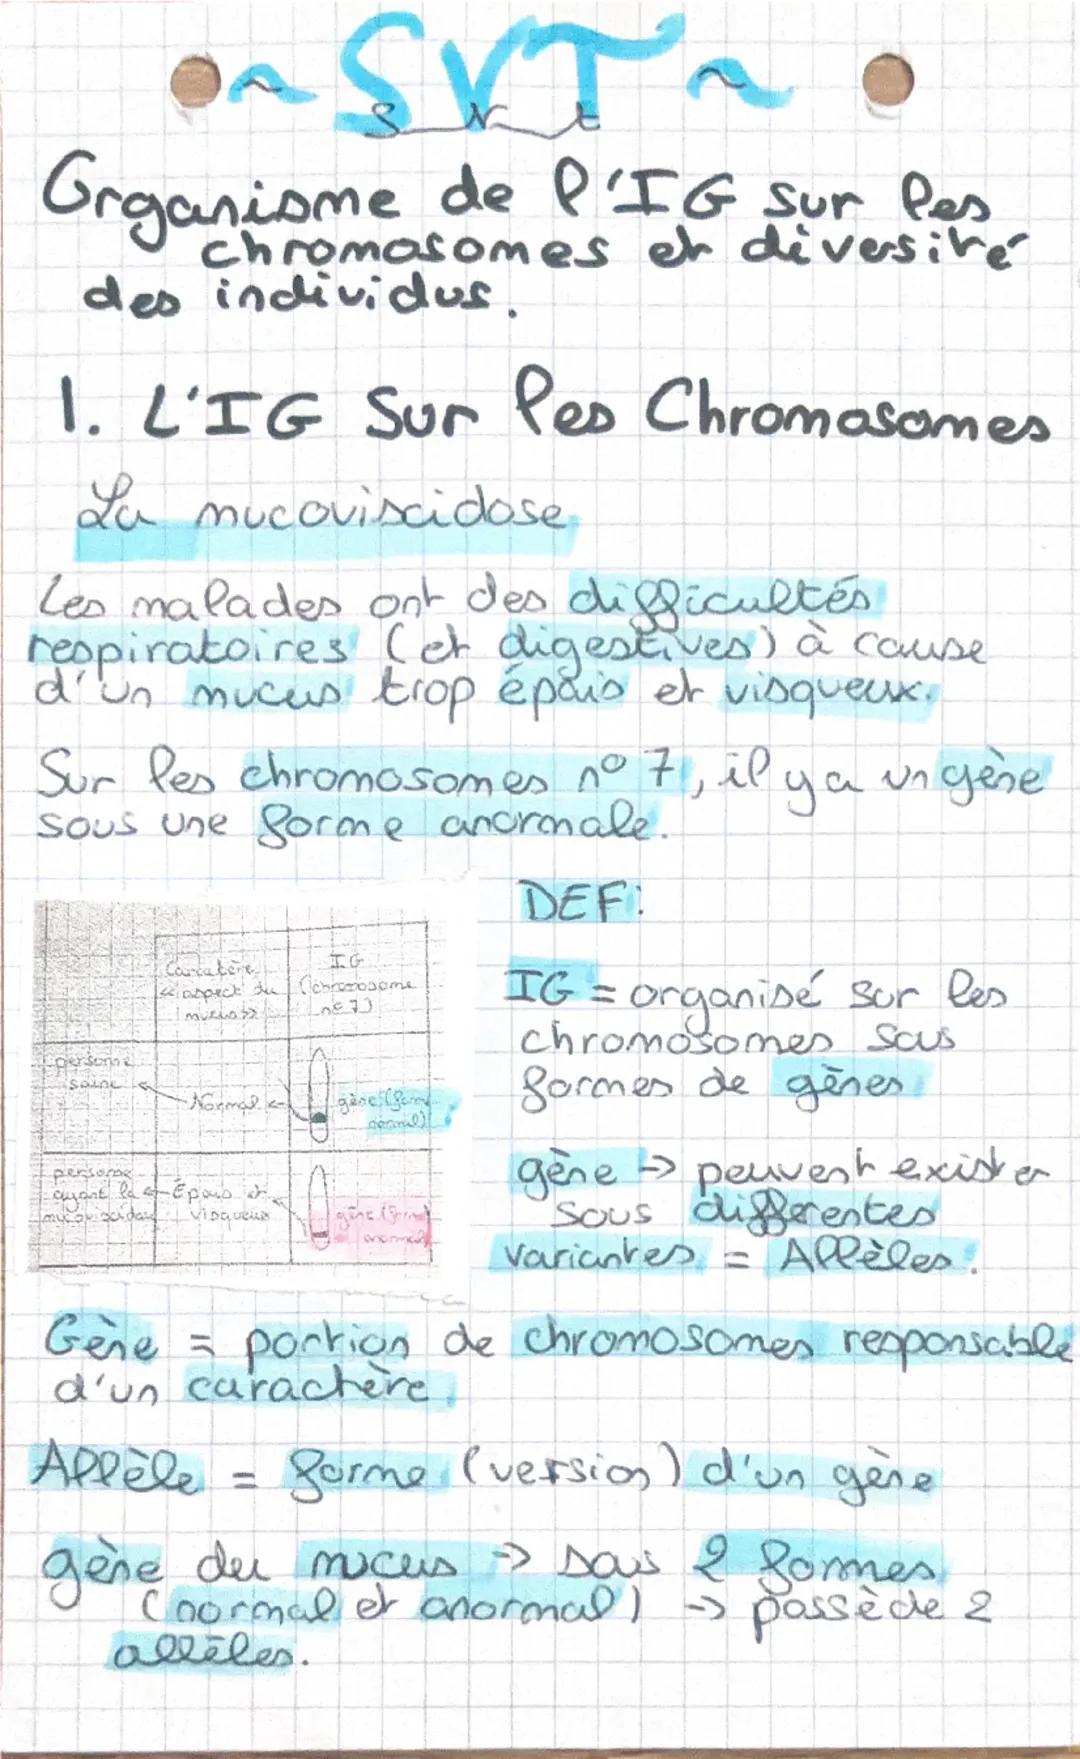 ~ SVT ~
Organisme de l'IG sur les
chromosomes et diversité
des individus.
1. L'IG Sur les Chromosomes
La mucoviscidose
Les malades ont des difficultés
respiratoires (et digestives) à cause
d'un mucus trop épais et visqueux.
Sur les chromosomes n° 7, il y a un gène
sous une forme anormale.
Caractère
« aspect du
mucus »
IG
(chromosome
n° 7)
personne
saine
Normal
gène (forme
normal)
personne
ayant la
mucoviscidose
Épais et
visqueux
gène (forme
anormal)
DEF:
IG = organisé sur les
chromosomes sous
formes de gènes
gène -> peuvent exister
sous differentes
variantes = Allèles.
Gène = portion de chromosomes responsable
d'un caractère.
Allèle = forme (version) d'un gène
gène du mucus -> sous 2 formes
(normal et anormal) -> possède 2
allèles.